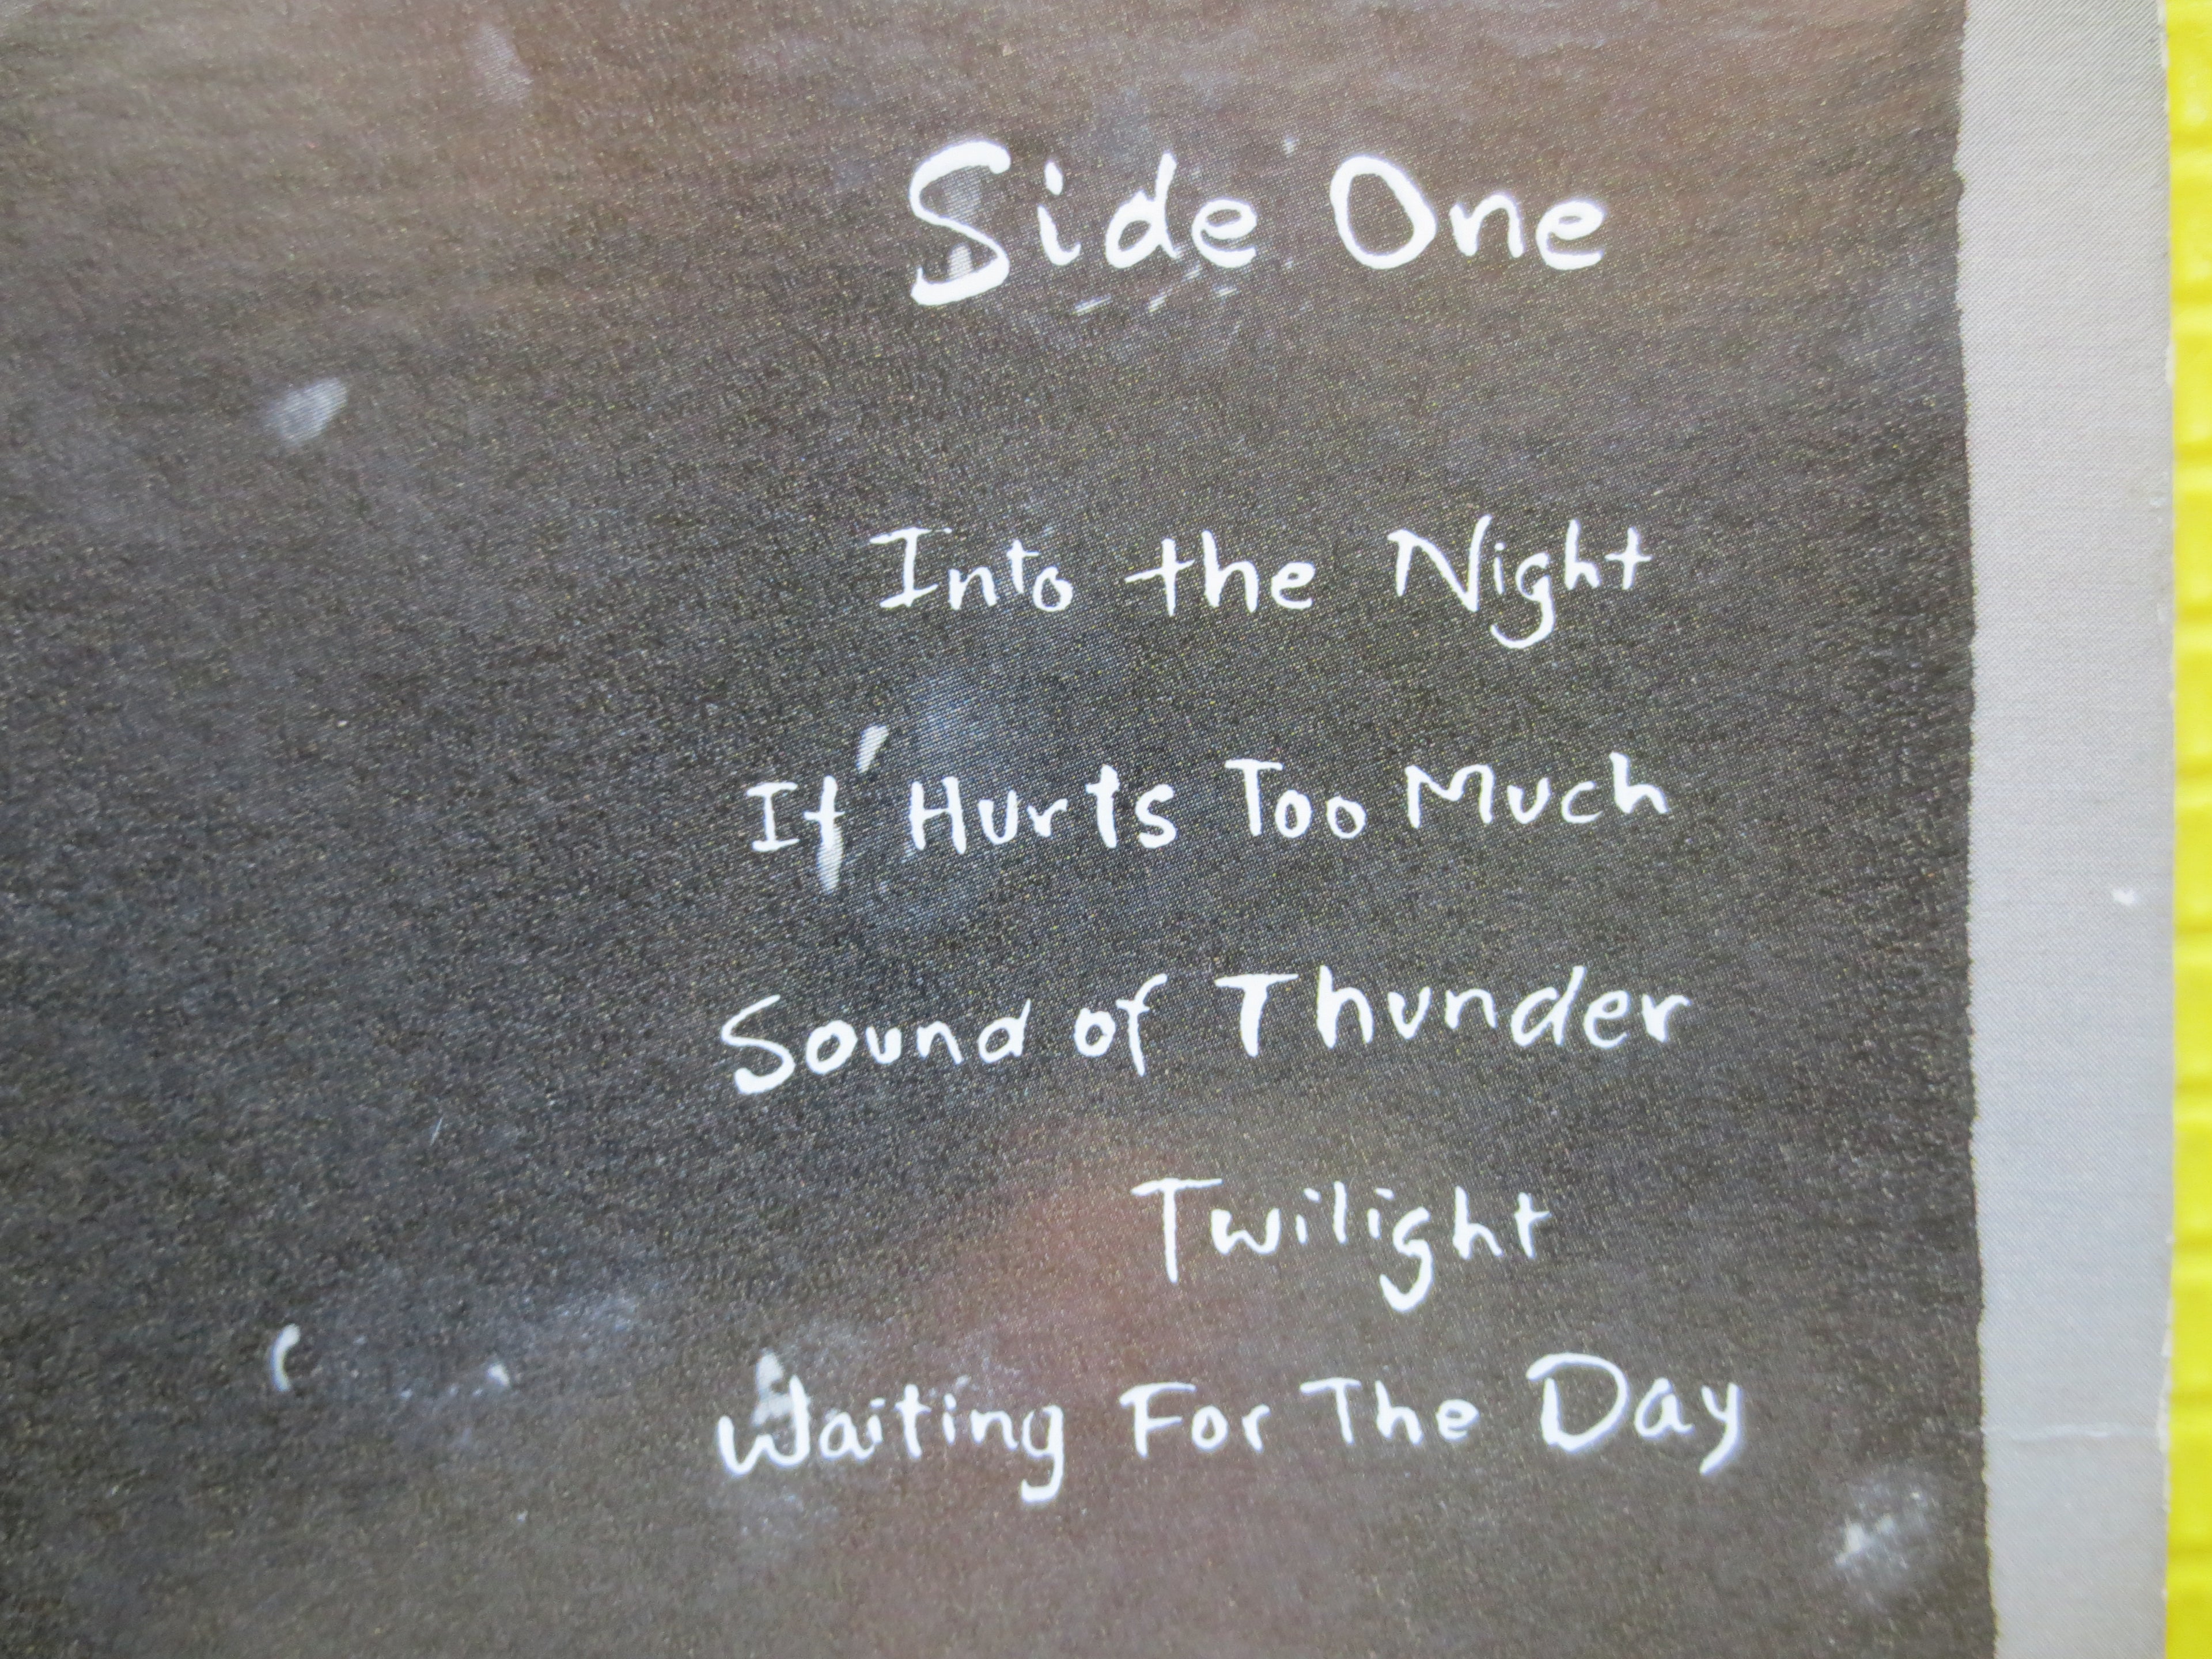 Side One
Into the Night
It Hurts Too Much
Sound of Thunder
Twilight
Waiting For The Day